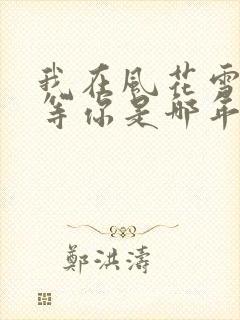 我在風花雪
等你是那年
鄭洪濤